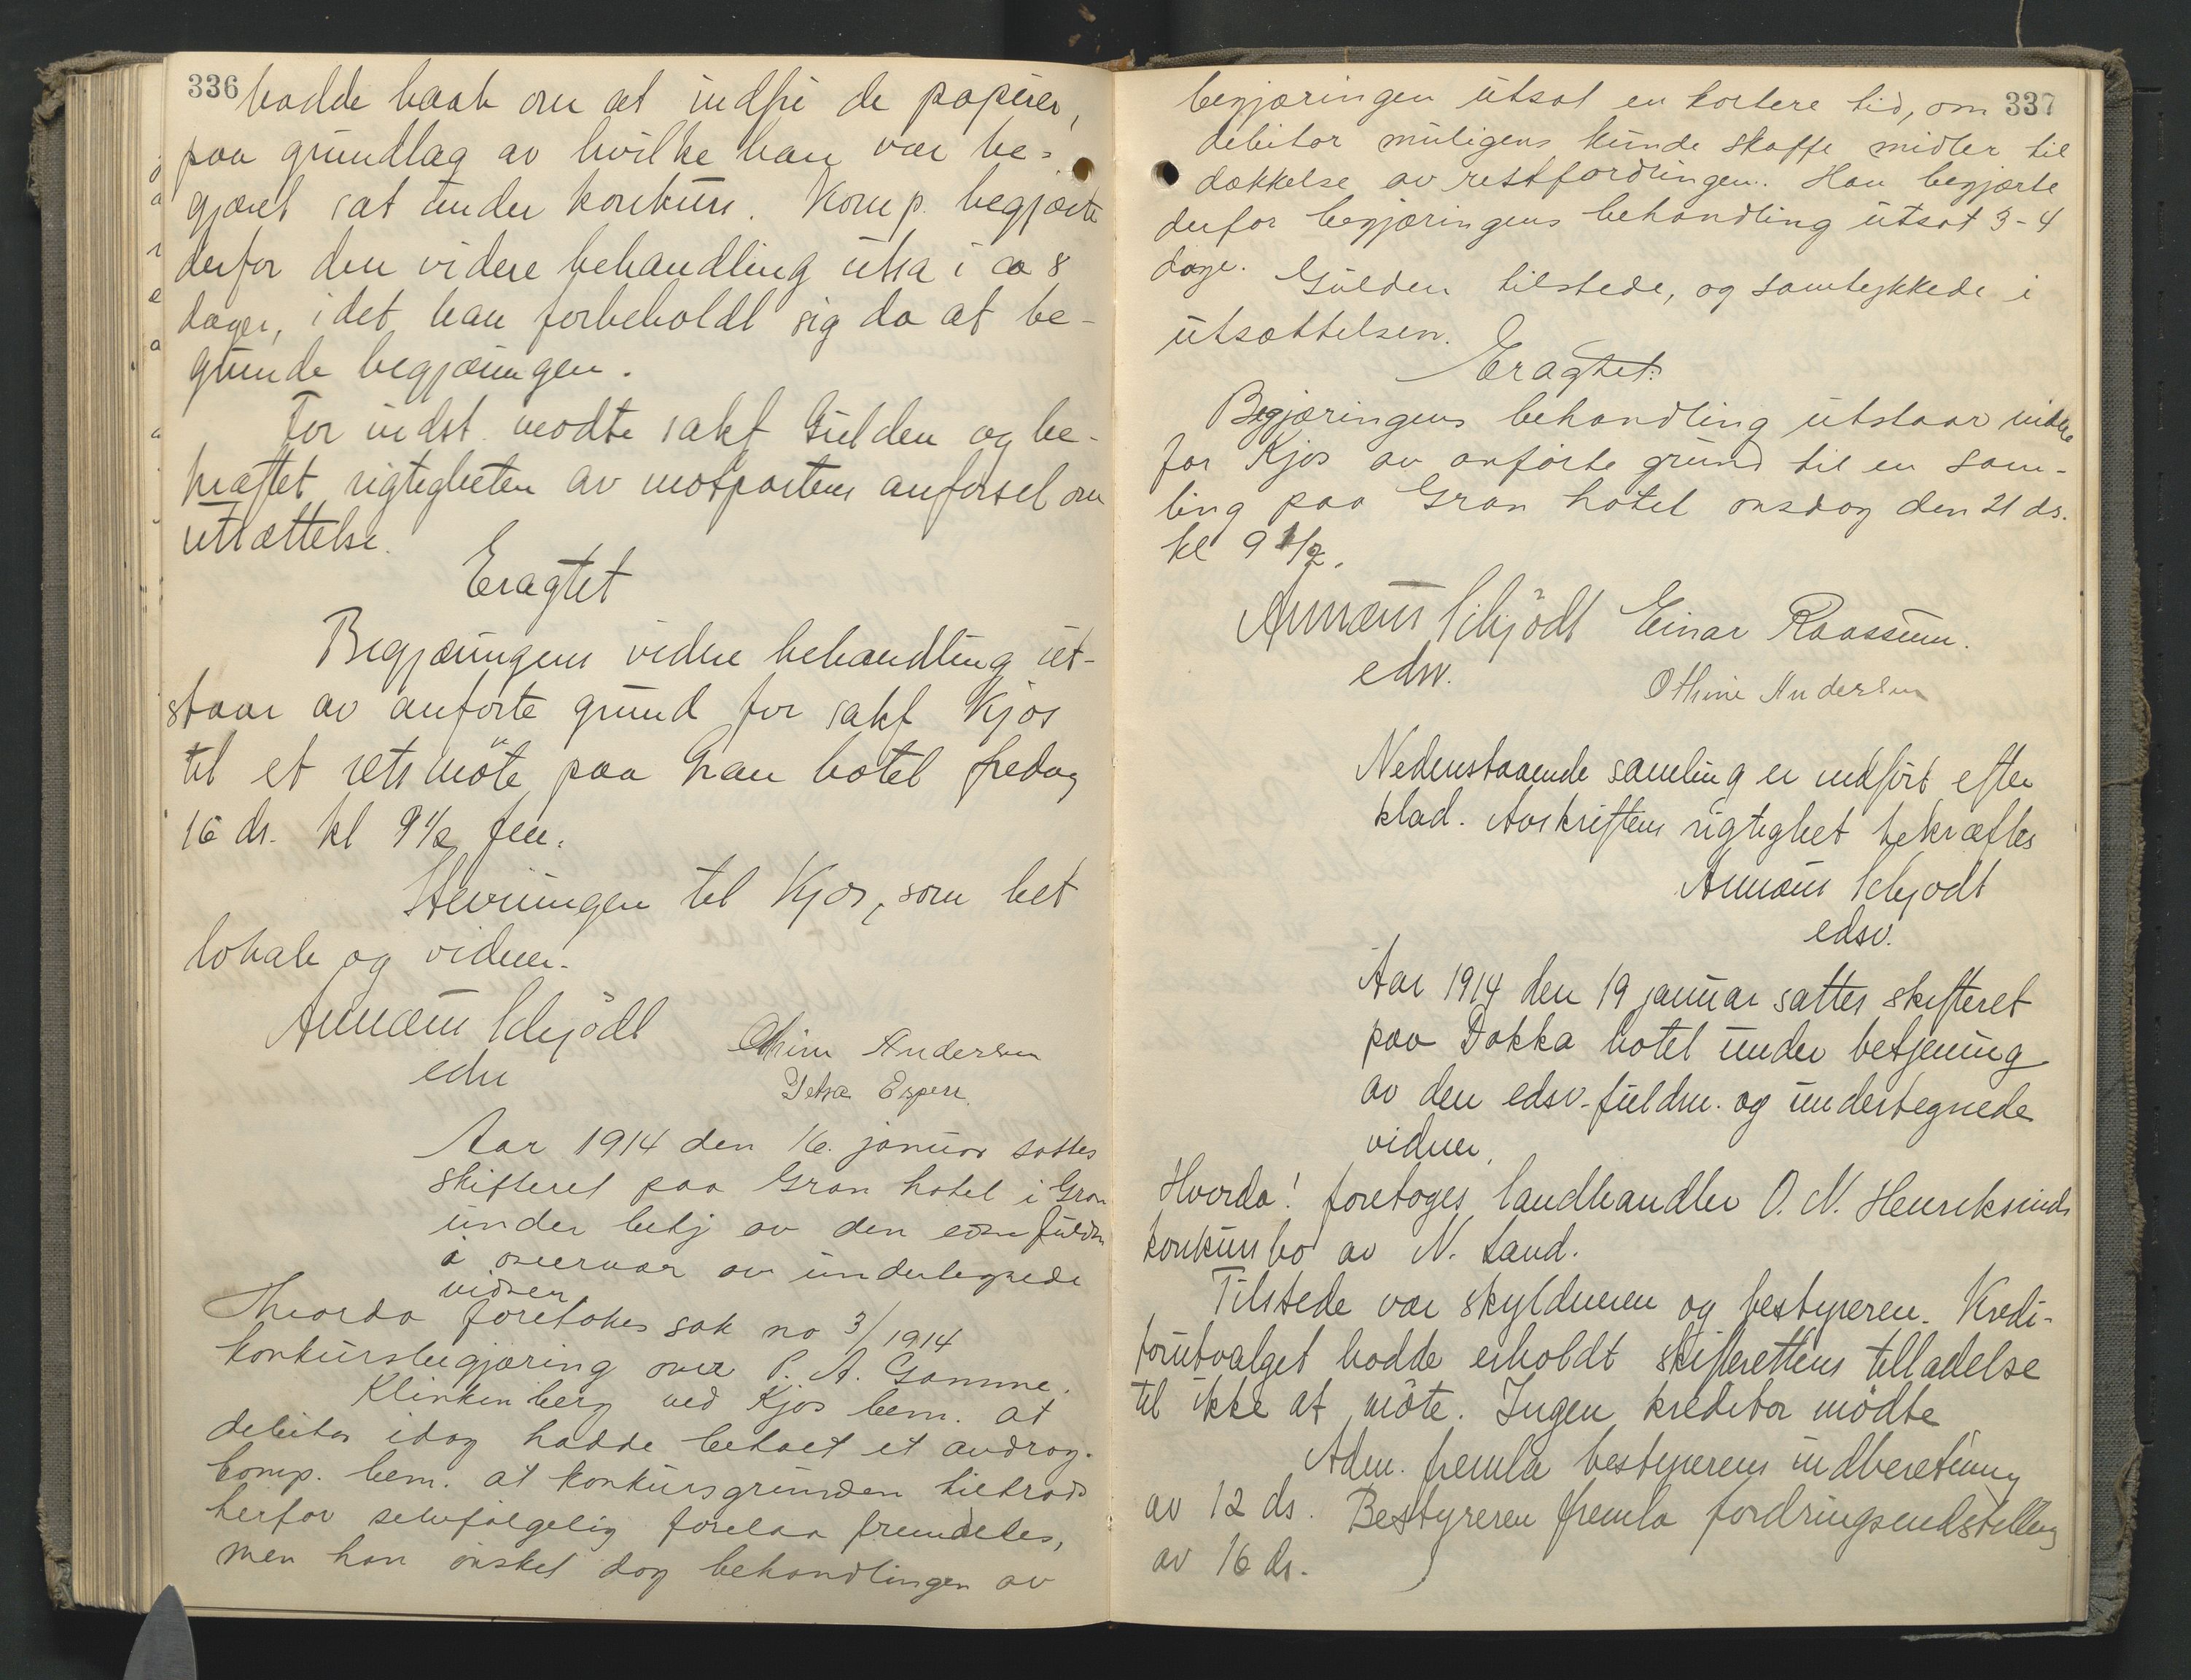 336
hadde haab om at indfri de papirer,
paa grundlag av hvilke han var be=
gjæret sat under konkurs. Komp. begjærte
derfor den videre behandling utsa i ca 8
dager, idet han forbeholdt sig da at be-
grunde begjæringen.
For indst. mødte sakf Gulden og be-
kræftet rigtigheten av motpartens anførsel om
utsættelse.
Eragtet
Begjæringens videre behandling ut-
staar av anførte grund for sakf Kjos
til et retsmöte paa Gran hotel fredag
16 ds. kl 9 1/2 fm.
Stevningen til Kjos, som bet
lokale og vidner.
Annæus Schjödt
edsv
Othine Andersen
Petra Espen
Aar 1914 den 16. januar sattes
skifteret paa Gran hotel i Gran
under betj av den edsv fuldm
i overvær av undertegnede
vidner
Hvorda foretokes sak no 3/1914
konkursbegjæring over P. A. Gamme.
Klinkenberg ved Kjos bem. at
debitor idag hadde betalt et avdrag.
Comp. bem. at konkursgrunden tiltrods
herfor selvfølgelig forelaa fremdeles,
men han ønsket dog behandlingen av
337
begjæringen utsat en kortere tid, om
debitor muligens kunde skaffe midler til
dækkelse av restfordringen. Han begjærte
derfor begjæringens behandling utsat 3-4
dage.
Gulden tilstede, og samtykkede i
utsættelsen.
Eragtet:
Begjæringens behandling utstaar videre
for Kjos av anførte grund til en sam-
ling paa Gran hotel onsdag den 21 ds.
kl 9 1/2.
Annæus Schjödt Einar Raassum.
edsv.
Othine Andersen
Nedenstaaende samling er indført efter
klad. Avskriftens rigtighet bekræftes
Annæus Schjødt
edsv.
Aar 1914 den 19 januar sattes skifteret
paa Dokka hotel under betjening
av den edsv. fuldm. og undertegnede
vidner.
Hvorda! foretoges landhandler O. N. Henriksruds
konkursbo av N. Land.
Tilstede var skyldneren og bestyreren. Kredi-
torutvalget hadde erholdt skifterettens tilladelse
til ikke at möte. Ingen kreditor mødte
Adm. fremla bestyrerens indberetning
av 12 ds. Bestyreren fremla fordringsindstilling
av 16 ds.